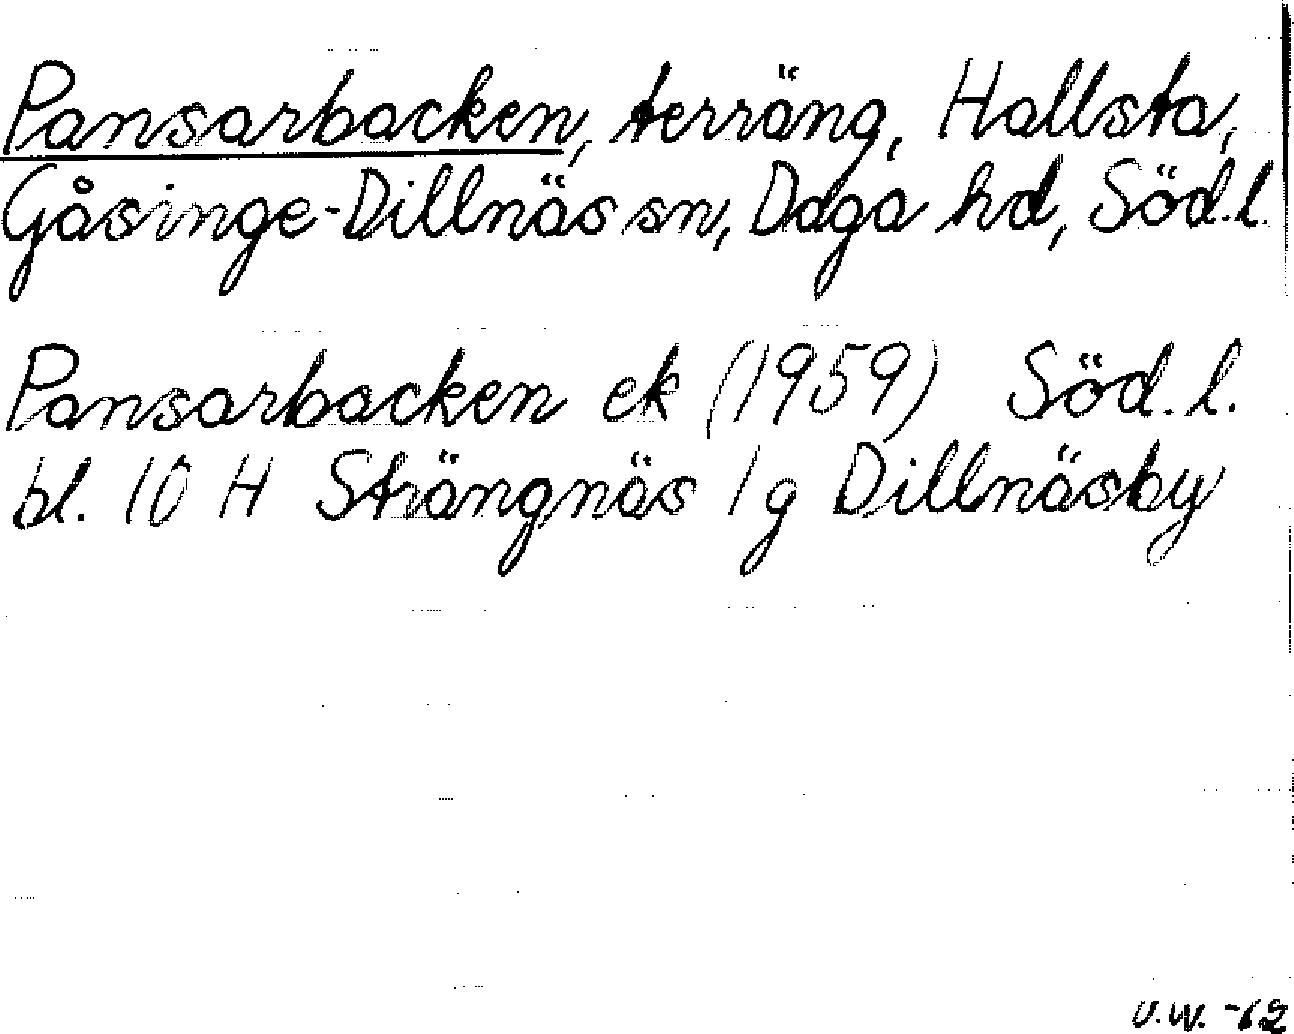 Pansarbacken, terräng, Hallsta,
Gåsinge-Dillnäs sn, Daga hd, Söd.l.
Pansarbacken ek (1959) Söd.l.
bl. 10 H Strängnäs 1 g Dillnäsby
U.W. -62